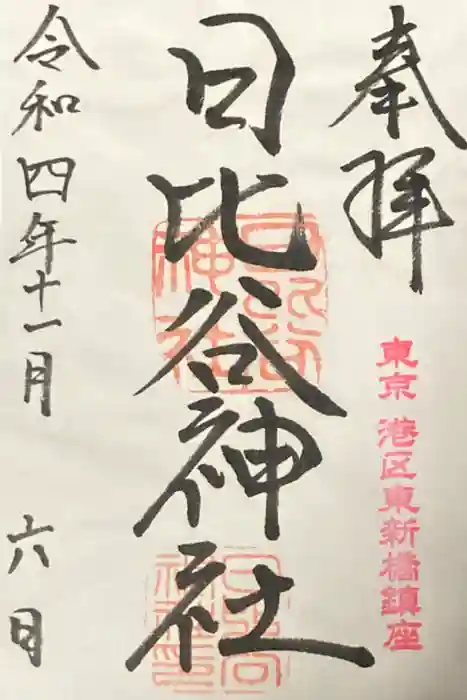 奉拝
東京 港区東新橋鎮座
日比谷神社
日比谷神社
令和四年十一月 六日